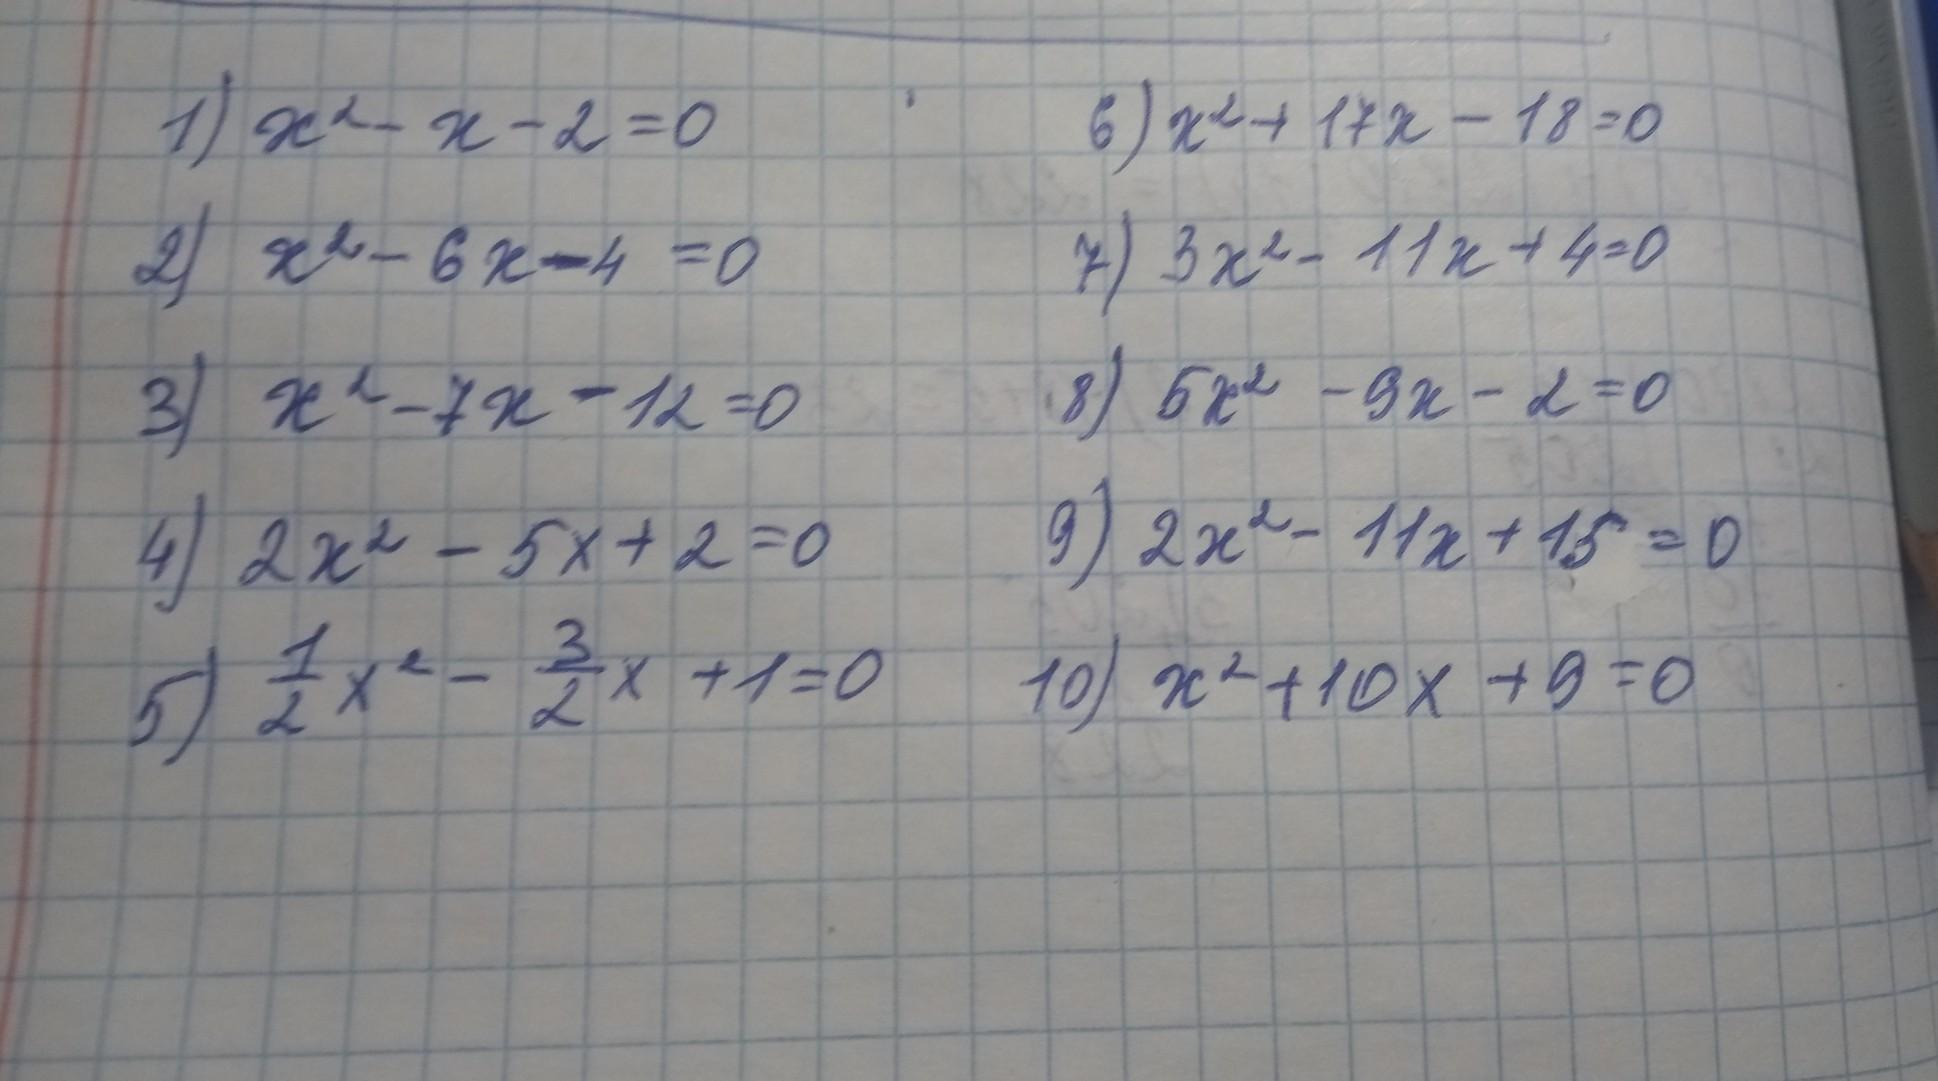 1) x² - x - 2 = 0
2) x² - 6x - 4 = 0
3) x² - 7x - 12 = 0
4) 2x² - 5x + 2 = 0
5) 1/2 x² - 3/2 x + 1 = 0
6) x² + 17x - 18 = 0
7) 3x² - 11x + 4 = 0
8) 5x² - 9x - 2 = 0
9) 2x² - 11x + 15 = 0
10) x² + 10x + 9 = 0